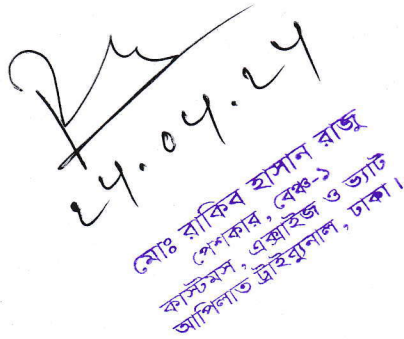 24.04.24
মোঃ রাকিব হাসান রাজু
পেশকার, বেঞ্চ-১
কাস্টমস, এক্সাইজ ও ভ্যাট
আপিলাত ট্রাইব্যুনাল, ঢাকা।